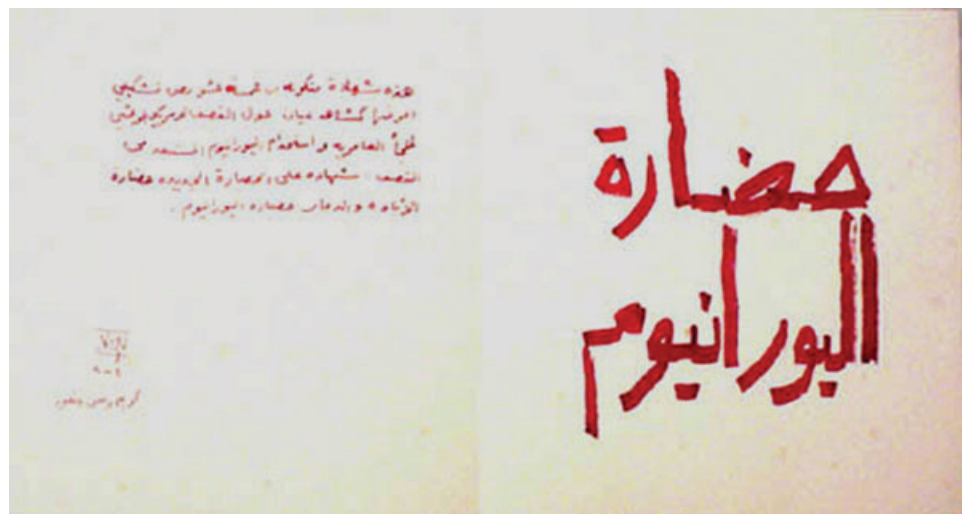 حضارة
اليورانيوم
هذه شهادة مكونة من خمسة عشر نص تشكيلي
كشاهد عيان حول القصف
ملجأ العامريه و استخدام اليورانيوم المستنفد في
القصف شهاده على الحضارة الجديده حضارة
الأباده والدمار حضارة اليورانيوم .
كريم رسن منصور